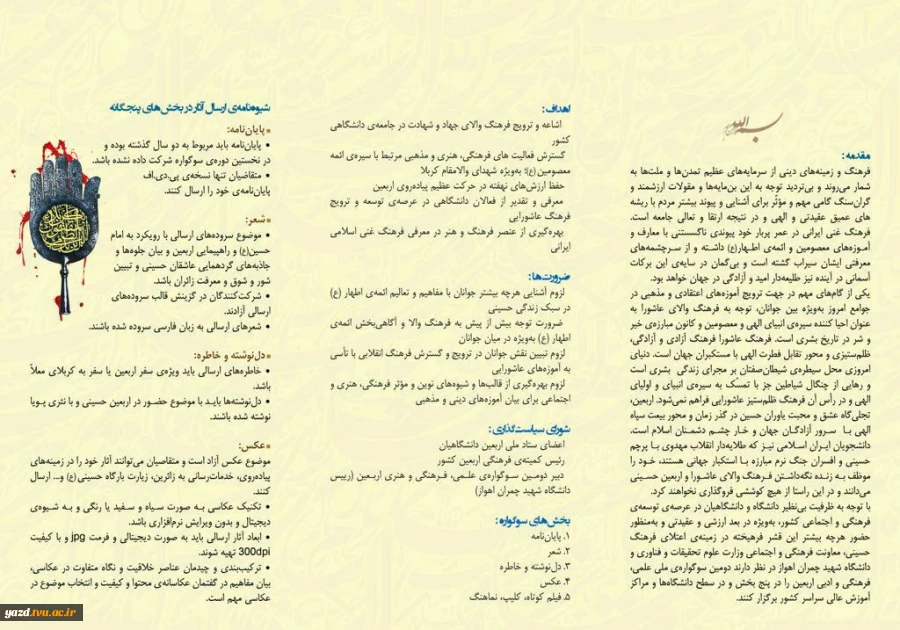 بسم الله
مقدمه:
فرهنگ و زمینه‌های دینی از سرمایه‌های عظیم تمدن‌ها و ملت‌ها به
شمار می‌روند و بی‌تردید توجه به این بن‌مایه‌ها و مقولات ارزشمند و
گران‌سنگ گامی مهم و مؤثر برای آشنایی و پیوند بیشتر مردم با ریشه
های عمیق عقیدتی و الهی و در نتیجه ارتقا و تعالی جامعه است.
فرهنگ غنی ایرانی در عمر پربار خود پیوندی ناگسستنی با معارف و
آموزه‌های معصومین و ائمه‌ی اطهار(ع) داشته و از سرچشمه‌های
معرفتی ایشان سیراب گشته است و بی‌گمان در سایه‌ی این برکات
آسمانی در آینده نیز طلیعه‌دار امید و آزادگی در جهان خواهد بود.
یکی از گام‌های مهم در جهت ترویج آموزه‌های اعتقادی و مذهبی در
جوامع امروز به‌ویژه بین جوانان، توجه به فرهنگ والای عاشورا به
عنوان احیا کننده سیره‌ی انبیای الهی و معصومین و کانون مبارزه‌ی خیر
و شر در تاریخ بشری است. فرهنگ عاشورا فرهنگ آزادی و آزادگی،
ظلم‌ستیزی و محور تقابل فطرت الهی با مستکبران جهان است. دنیای
امروزی محل سیطره‌ی شیطان‌صفتان بر مجرای زندگی بشری است
و رهایی از چنگال شیاطین جز با تمسک به سیره‌ی انبیای و اولیای
الهی و در رأس آن فرهنگ ظلم‌ستیز عاشورایی فراهم نمی‌شود. اربعین،
تجلی‌گاه عشق و محبت یاوران حسین در گذر زمان و محور بیعت سپاه
الهی با سرور آزادگان جهان و خار چشم دشمنان اسلام است.
دانشجویان ایران اسلامی نیز که طلایه‌دار انقلاب مهدوی با پرچم
حسینی و افسران جنگ نرم مبارزه با استکبار جهانی هستند، خود را
موظف به زنده نگه‌داشتن فرهنگ والای عاشورا و اربعین حسینی
می‌دانند و در این راستا از هیچ کوششی فروگذاری نخواهند کرد.
با توجه به ظرفیت بی‌نظیر دانشگاه و دانشگاهیان در عرصه‌ی توسعه‌ی
فرهنگی و اجتماعی کشور، به‌ویژه در بعد ارزشی و عقیدتی و به‌منظور
حضور هرچه بیشتر این قشر فرهیخته در زمینه‌ی اعتلای فرهنگ
حسینی، معاونت فرهنگی و اجتماعی وزارت علوم تحقیقات و فناوری و
دانشگاه شهید چمران اهواز در نظر دارند دومین سوگواره‌ی ملی علمی،
فرهنگی و ادبی اربعین را در پنج بخش و در سطح دانشگاه‌ها و مراکز
آموزش عالی سراسر کشور برگزار کنند.
اهداف:
اشاعه و ترویج فرهنگ والای جهاد و شهادت در جامعه‌ی دانشگاهی
کشور
گسترش فعالیت های فرهنگی، هنری و مذهبی مرتبط با سیره‌ی ائمه
معصومین (ع)؛ به‌ویژه شهدای والامقام کربلا
حفظ ارزش‌های نهفته در حرکت عظیم پیاده‌روی اربعین
معرفی و تقدیر از فعالان دانشگاهی در عرصه‌ی توسعه و ترویج
فرهنگ عاشورایی
بهره‌گیری از عنصر فرهنگ و هنر در معرفی فرهنگ غنی اسلامی
ایرانی
ضرورت‌ها:
لزوم آشنایی هرچه بیشتر جوانان با مفاهیم و تعالیم ائمه‌ی اطهار (ع)
در سبک زندگی حسینی
ضرورت توجه بیش از پیش به فرهنگ والا و آگاهی‌بخش ائمه‌ی
اطهار (ع) به‌ویژه در میان جوانان
لزوم تبیین نقش جوانان در ترویج و گسترش فرهنگ انقلابی با تأسی
به آموزه‌های عاشورایی
لزوم بهره‌گیری از قالب‌ها و شیوه‌های نوین و مؤثر فرهنگی، هنری و
اجتماعی برای بیان آموزه‌های دینی و مذهبی
شورای سیاست‌گذاری:
اعضای ستاد ملی اربعین دانشگاهیان
رئیس کمیته‌ی فرهنگی اربعین کشور
دبیر دومین سوگواره‌ی علمی، فرهنگی و هنری اربعین (رییس
دانشگاه شهید چمران اهواز)
بخش‌های سوگواره:
۱. پایان‌نامه
۲. شعر
۳. دل‌نوشته و خاطره
۴. عکس
۵. فیلم کوتاه، کلیپ، نماهنگ
شیوه‌نامه‌ی ارسال آثار در بخش‌های پنجگانه
■ پایان‌نامه:
• پایان‌نامه باید مربوط به دو سال گذشته بوده و
در نخستین دوره‌ی سوگواره شرکت داده نشده باشد.
• متقاضیان تنها نسخه‌ی پی.دی.اف
پایان‌نامه‌ی خود را ارسال کنند.
■ شعر:
• موضوع سروده‌های ارسالی با رویکرد به امام
حسین(ع) و راهپیمایی اربعین و بیان جلوه‌ها و
جاذبه‌های گردهمایی عاشقان حسینی و تبیین
شور و شوق و معرفت زائران باشد.
• شرکت‌کنندگان در گزینش قالب سروده‌های
ارسالی آزادند.
• شعرهای ارسالی به زبان فارسی سروده شده باشند.
■ دل‌نوشته و خاطره:
• خاطره‌های ارسالی باید ویژه‌ی سفر اربعین یا سفر به کربلای معلا
باشد.
• دل‌نوشته‌ها باید با موضوع حضور در اربعین حسینی و با نثری پویا
نوشته شده باشند.
■ عکس:
موضوع عکس آزاد است و متقاضیان می‌توانند آثار خود را در زمینه‌های
پیاده‌روی، خدمات‌رسانی به زائرین، زیارت بارگاه حسینی (ع) و... ارسال
کنند.
• تکنیک عکاسی به صورت سیاه و سفید یا رنگی و به شیوه‌ی
دیجیتال و بدون ویرایش نرم‌افزاری باشد.
• ابعاد آثار ارسالی باید به صورت دیجیتالی و فرمت jpg و با کیفیت
300dpi تهیه شوند.
• ترکیب‌بندی و چیدمان عناصر خلاقیت و نگاه متفاوت در عکاسی،
بیان مفاهیم در گفتمان عکاسانه‌ی محتوا و کیفیت و انتخاب موضوع در
عکاسی مهم است.
yazd.tvu.ac.ir